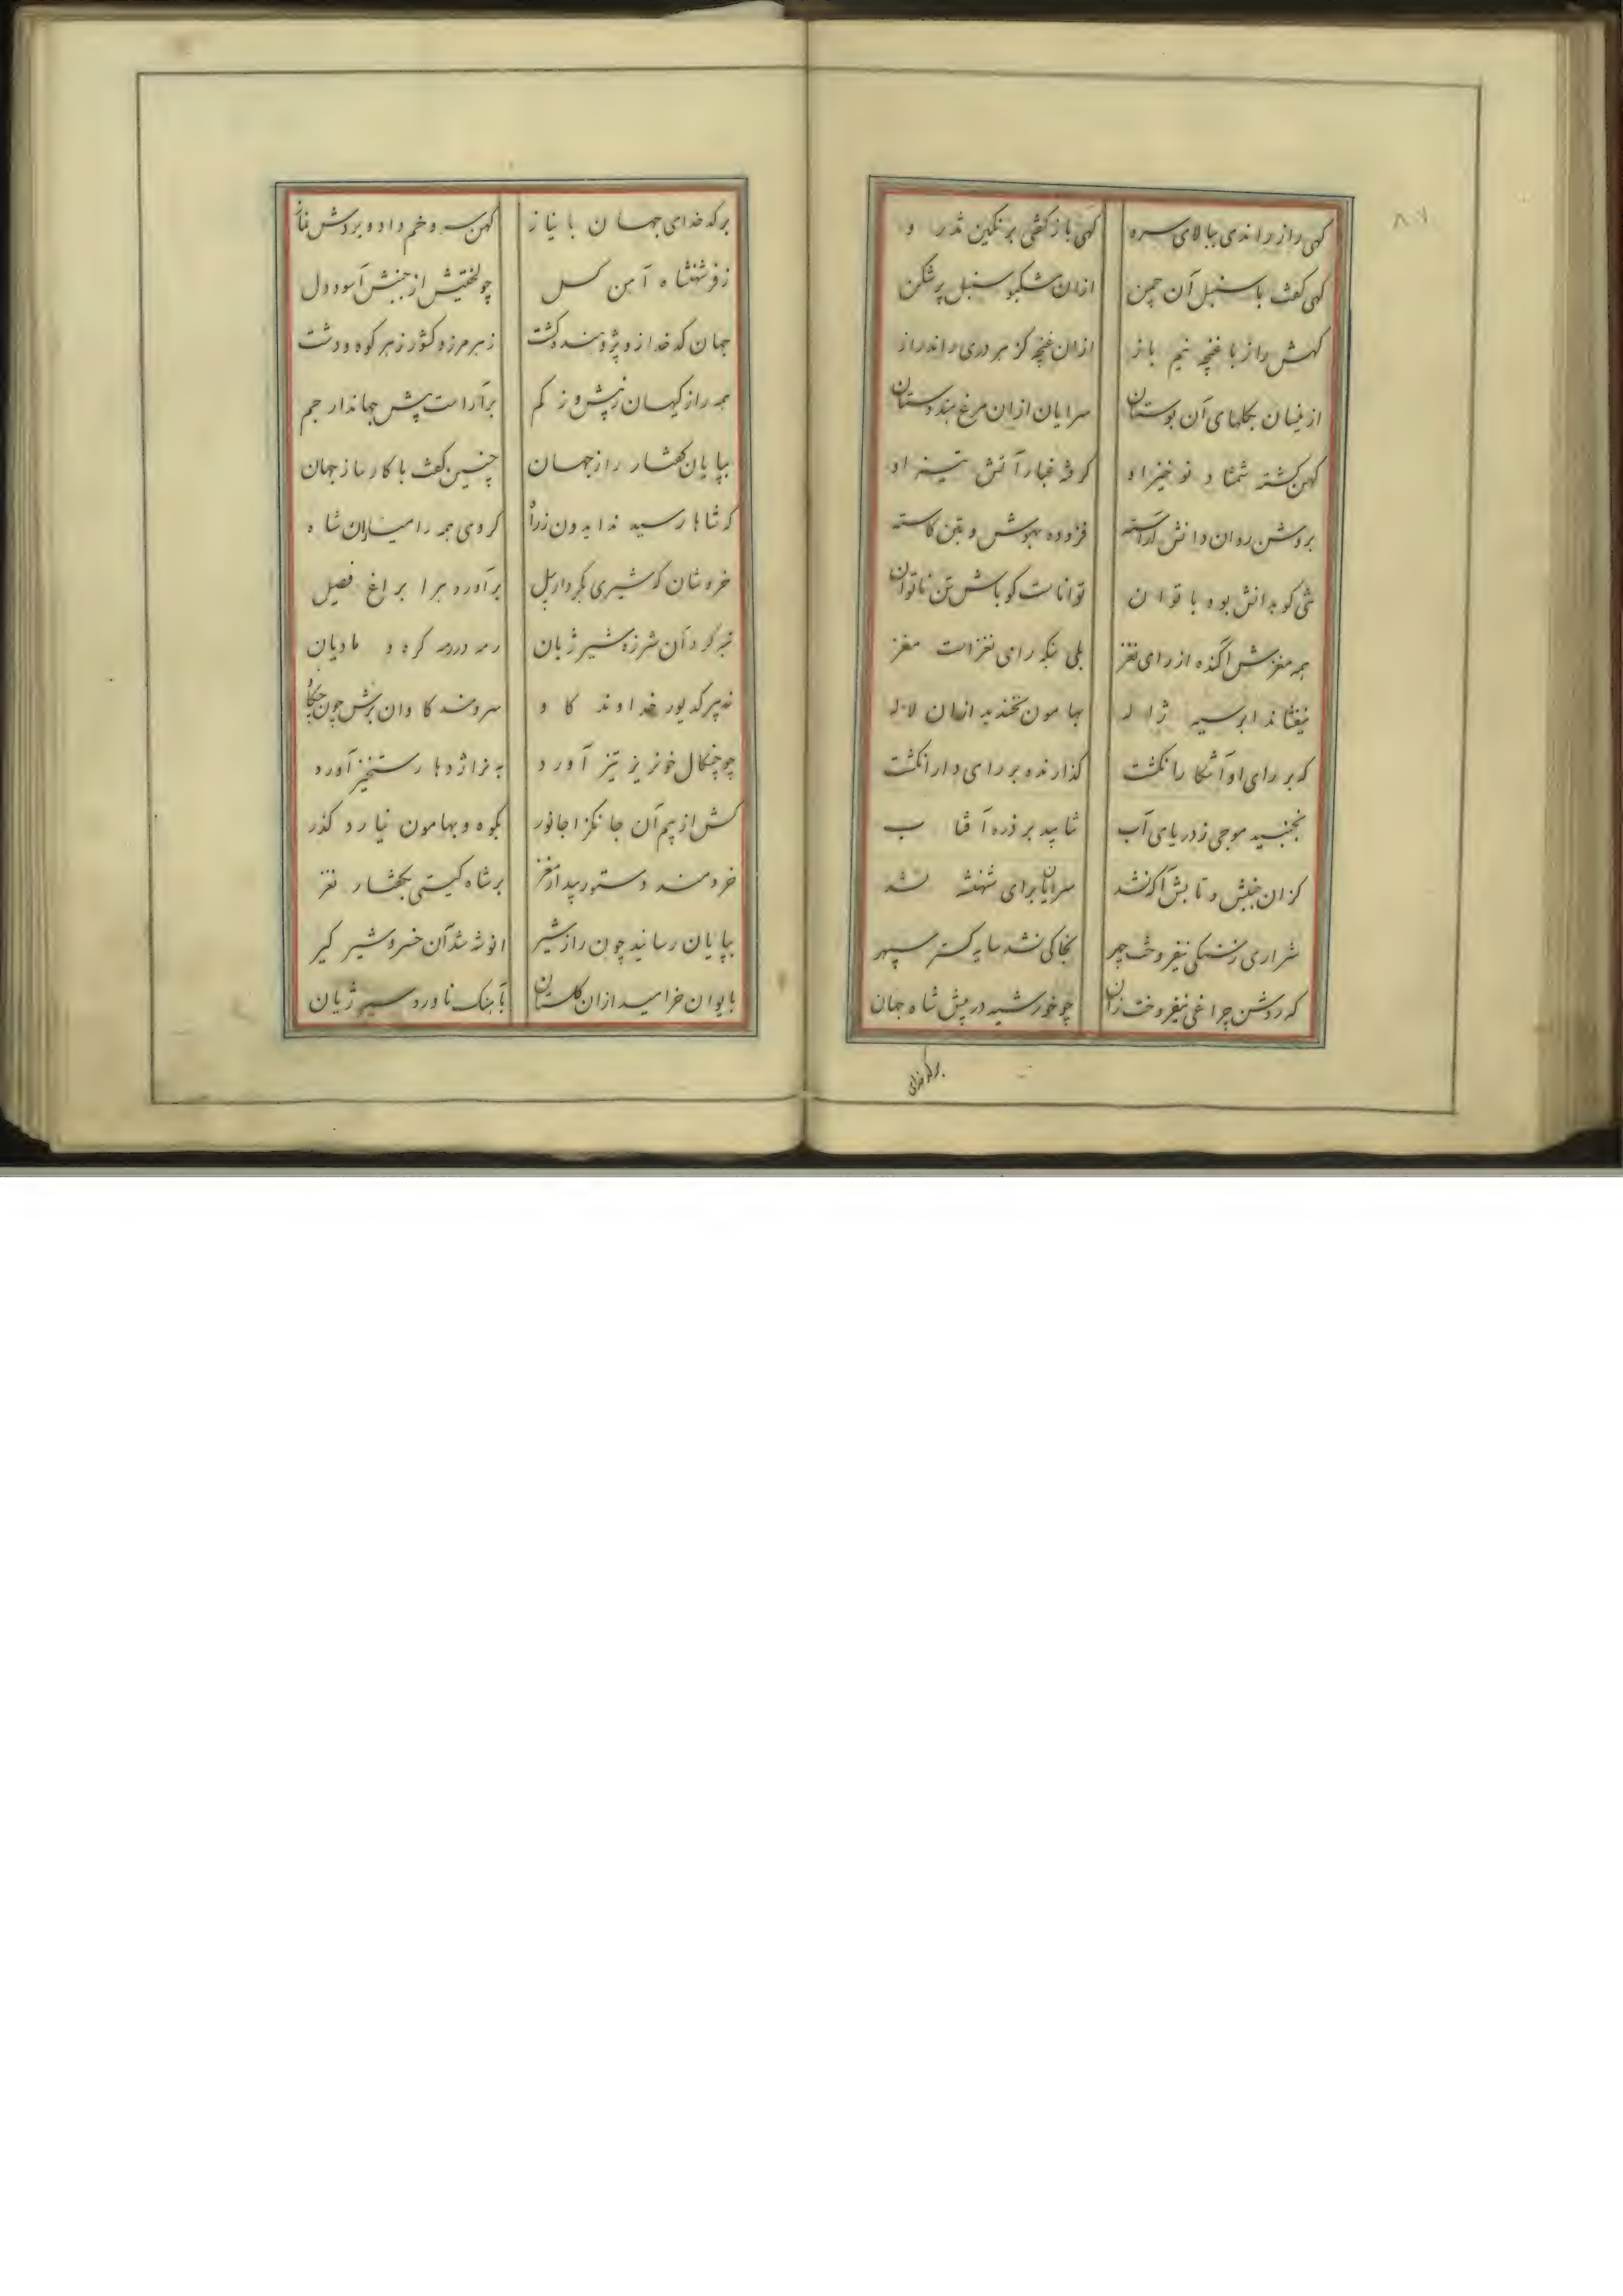 ۸۰۷
کهی راز راندی ببالای سرو کهی باز کفتی برنکین تذر و
کهی کفت با سنبل آن چمن ازان مشکبو سنبل پرشکن
کهش راز با غنچه نیم باز ازان غنچه کز هر دری راند راز
ازینسان بکلهای آن بوستان سرایان ازان مرغ هندوستان
کهن کشته شمشا د نو خیز او که غبار آتش تیز او
بروشن روان دانش آراسته فزوده بهوش و بتن کاسته
تنی کو بدانش بود با توان تواناست کو باش تن ناتوان
همه مغزش آکنده از رای نغز بلی پیکر رای نغزاست مغز
نیفشاند ابر سیه ژاله بهامون نخندید ازان لاله
که بر رای او آشکارا نکشت کذارنده بر رای دارا نکشت
نجنبید موجی ز دریای آب نتابید بر ذره آفتاب
کزان جنبش و تابش آکه نشد سرایان برای شهنشه نشد
شراری ز سنکی نیفروخت چهر بخاکی نشد سایه کستر سپهر
که روشن چراغی نیفروخت زان چو خورشید در پیش شاه جهان
بر کدخدای
بر کدخدای جهان با نیاز کهن سرو خم داد و بردش نماز
ز فر شهنشاه آمن کسل چو لختیش از جنبش آسود دل
جهان کدخدا زو پژوهنده کشت ز هر مرز و کشور ز هر کوه و دشت
همه راز کیهان ز بیش و ز کم برآراست پیش جهاندار جم
بپایان کفتار راز جهان چنین کفت با کارساز جهان
که شاها رسیدند ایدون ز راه کروهی همه رامیاران شاه
خروشان که شیری بکردار پیل برآورده هرا براغ فصیل
تبه کرد آن شرزه شیر ژیان رمه در رمه کره و مادیان
نه پر کدیور خداوند کاو سرومند کاوان برش چون چکاو
چو چنکال خونریز تیز آورد به نر اژدها رستخیز آورد
کش از بیم آن جانکزا جانور بکوه و بهامون نیارد کذر
خردمند دستور بیدار مغز بر شاه کیتی بکفتار نغز
بپایان رسانید چون راز شیر انوشه شد آن خسرو شیر کیر
بایوان خرامید ازان کلستان بآهنک ناورد شیر ژیان